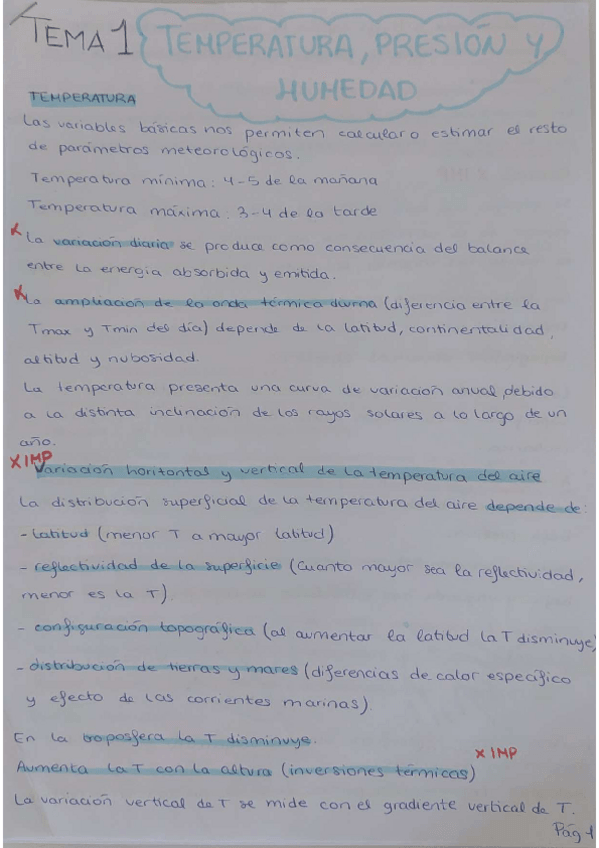 TEMA 1
TEMPERATURA, PRESIÓN Y
HUMEDAD
TEMPERATURA
Las variables básicas nos permiten calcular o estimar el resto
de parámetros meteorológicos.
Temperatura mínima: 4-5 de la mañana
Temperatura máxima: 3-4 de la tarde
x La variación diaria se produce como consecuencia del balance
entre la energía absorbida y emitida.
x La ampliación de la onda térmica diurna (diferencia entre la
Tmax y Tmin del día) depende de la latitud, continentalidad,
altitud y nubosidad.
La temperatura presenta una curva de variación anual, debido
a la distinta inclinación de los rayos solares a lo largo de un
año.
x IMP
Variación horitontal y vertical de la temperatura del aire
La distribución superficial de la temperatura del aire depende de:
- latitud (menor T a mayor latitud)
- reflectividad de la superficie (Cuanto mayor sea la reflectividad,
menor es la T).
- configuración topográfica (al aumentar la latitud la T disminuye)
- distribución de tierras y mares (diferencias de calor específico
y efecto de las corrientes marinas).
En la troposfera la T disminuye.
x IMP
Aumenta la T con la altura (inversiones térmicas)
La variación vertical de T se mide con el gradiente vertical de T.
Pág 1